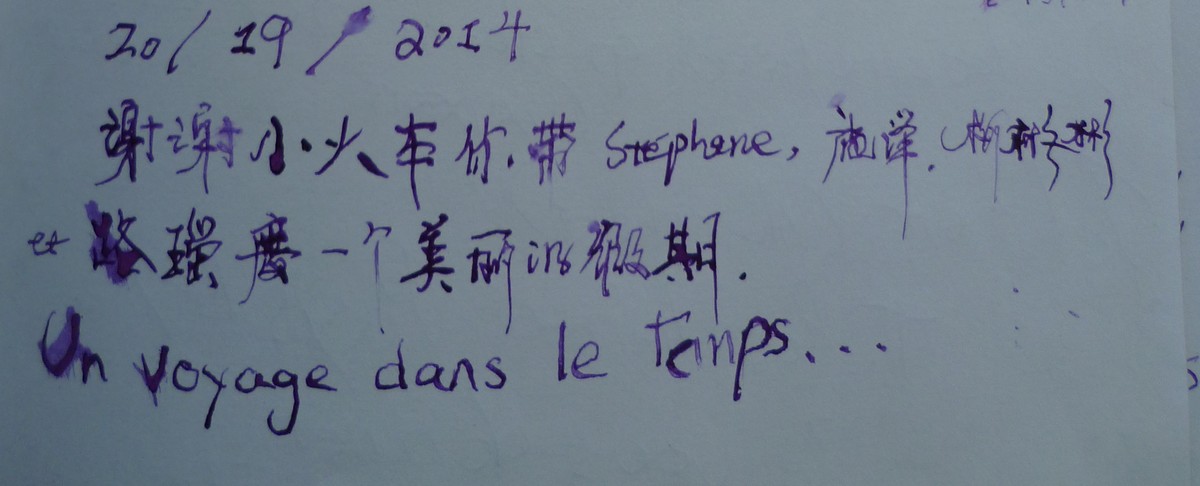 20/19/2014
谢谢小火车你带 Stephane, 施洋,
et 路瑶度一个美丽的假期.
Un voyage dans le Temps...